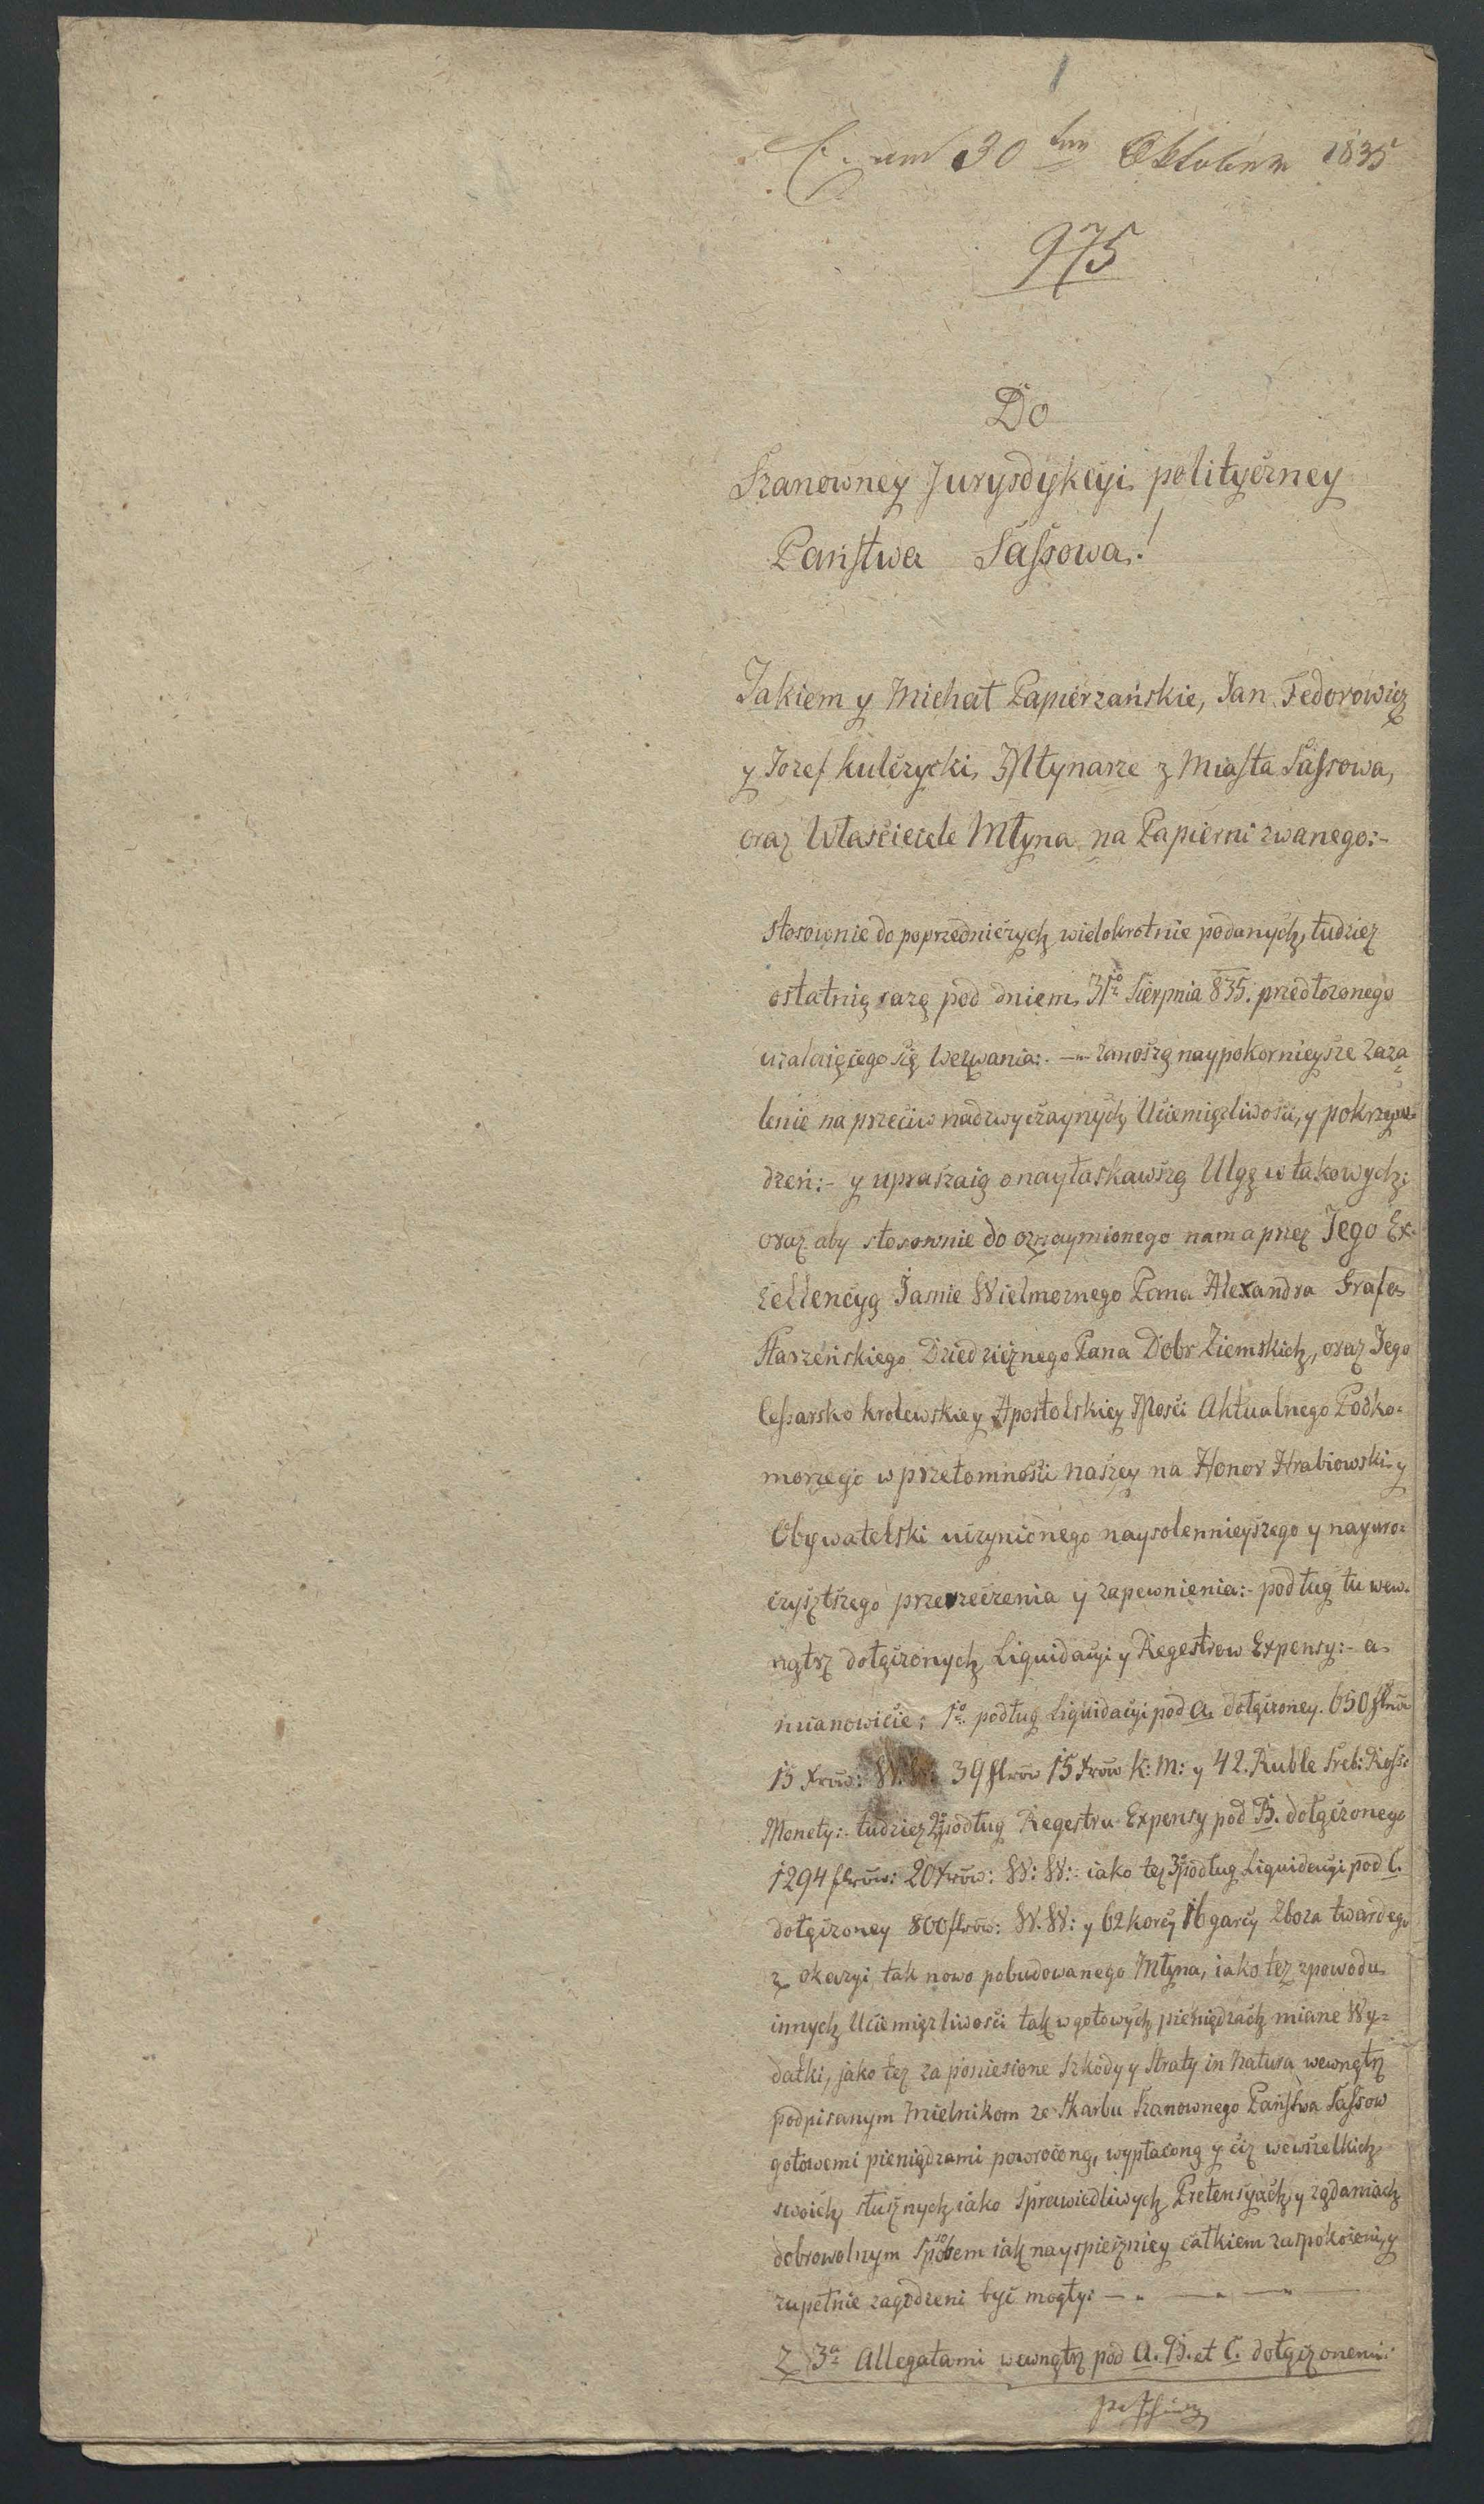 1
am 30 ten Oktober 1835
975
Do
Szanowney Jurysdykcyi polityczney
Państwa Sassowa!
Jakiem y Michał Papierzańskie, Jan Fedorowicz
y Jozef Kulczycki Młynarze z Miasta Sassowa,
oraz Właściciele Młyna na Papierni zwanego:-
stosownie do poprzedniczych wielokrotnie podanych, tudziez
ostatnią razą pod dniem 31go Sierpnia 835. przedłozonego
uzalaiącego się Wezwania:. — zanoszą naypokornieysze Zaza
lenie na przeciw nadzwyczaynych Uciemięzliwości, y pokrzyw-
dzeń:- y upraszaią o nayłaskawszą Ulgę w takowych;
oraz aby stosownie do oznaymionego nam a przez Jego Ex-
cellencyą Jasnie Wielmoznego Pana Alexandra Grafa
Starzeńskiego Dziedzicznego Pana Dobr Ziemskich, oraz Jego
Cessarsko krolewskiey Apostolskiey Mości Aktualnego Podko-
morzego w przetomności naszey na Honor Hrabiowski y
Obywatelski uczynionego naysolennieyszego y nayuro-
czystszego przerzeczenia y zapewnienia:- podług tu wew-
nątrz dołączonych Liquidacyi y Regestrow Expensy:- a
mianowicie; 1o podług Liquidacyi pod A. dołączoney. 650 flrów
15 Xrów: W.W: 39 flrów 15 Xrów K: M: y 42. Ruble Sreb: Ross:
Monety:- tudziez 2o podług Regestru Expensy pod B. dołączonego
1294 flrów: 20 Xrów: W: W:- iako tez 3o podług Liquidacyi pod C.
dołączoney 800 flrów: W. W: y 62 korcy 16 garcy Zboza twardego
z okazyi tak nowo pobudowanego Młyna, iako tez z powodu
innych Uciemięzliwości tak w gotowych pieniędzach miane Wy-
datki, jako tez za poniesione Szkody y Straty in Natura wewnątrz
podpisanym Mielnikom ze Skarbu Szanownego Państwa Sassow
gotowemi pieniądzami powrocone, wypłacone y ciz we wszelkich
swoich słusznych iako Sprawiedliwych Pretensyach y ządaniach
dobrowolnym Sposobem iak nayspieszniey całkiem zaspokoieni, y
zupełnie zagodzeni być mogły: — " — " — " —
Z 3a Allegatami wewnątrz pod A. B. et C. dołączonemi: